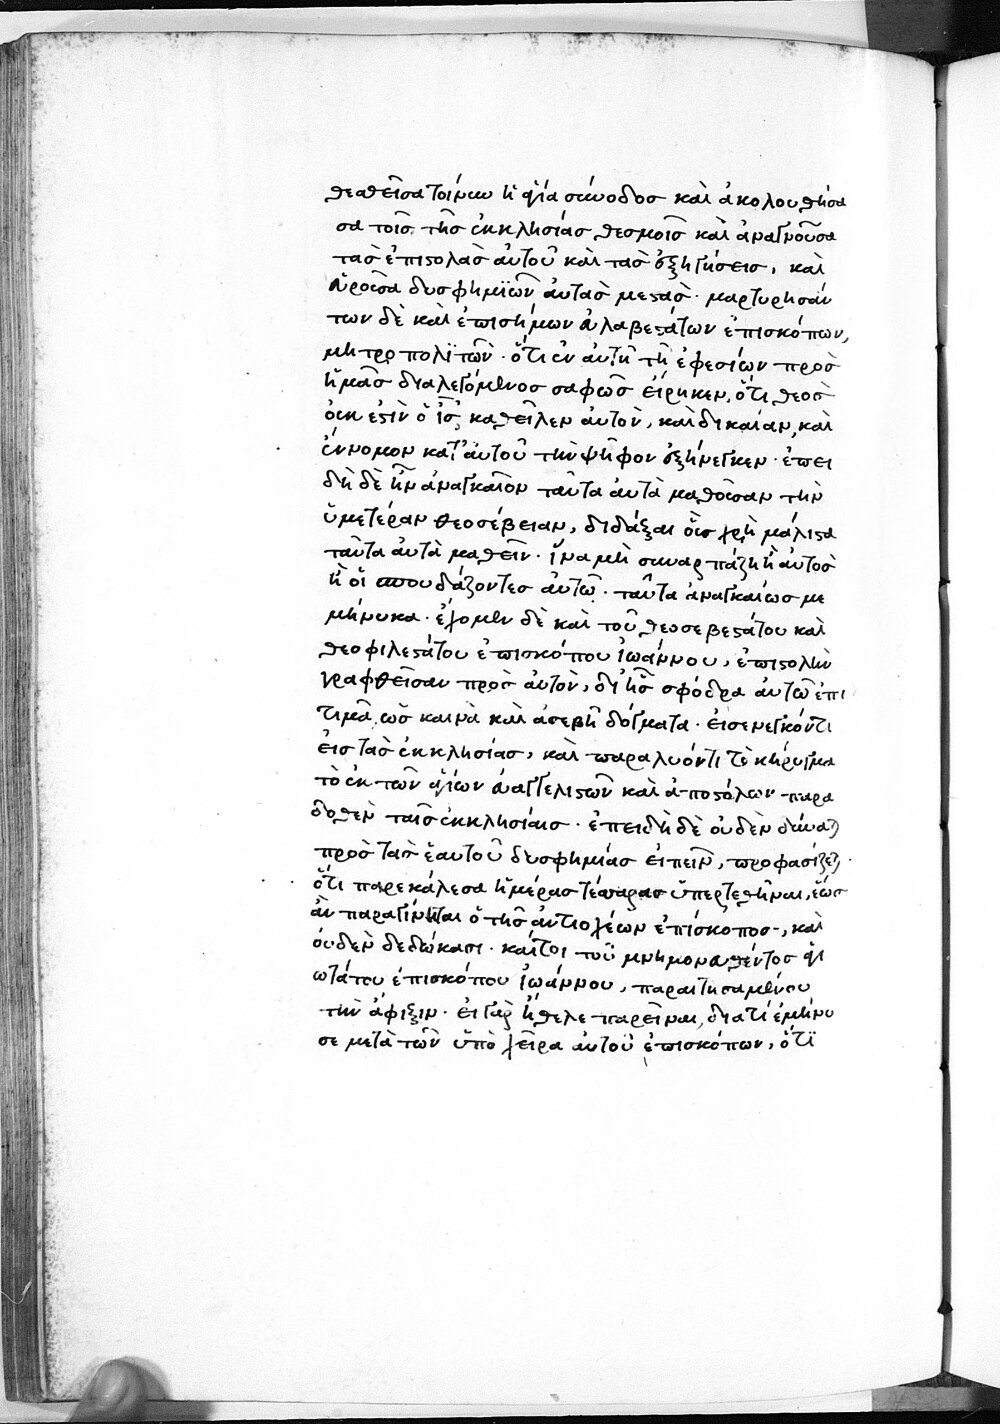 θεαθεῖσα τοίνυν ἡ ἁγία σύνοδος καὶ ἀκολουθήσα
σα τοῖς τῆς ἐκκλησίας θεσμοῖς καὶ ἀναγνοῦσα
τὰς ἐπιστολὰς αὐτοῦ καὶ τὰς ἐξηγήσεις, καὶ
εὑροῦσα δυσφημϊῶν αὐτὰς μεστὰς· μαρτυρησάν
των δὲ καὶ ἐπισήμων εὐλαβεστάτων ἐπισκόπων,
μητροπολϊτῶν· ὅτι ἐν αὐτῇ τῇ ἐφεσίων πρὸς
ἡμᾶς διαλεγόμενος σαφῶς εἴρηκεν, ὅτι θεὸς
οὐκ ἐστὶν ὁ ἰς, καθεῖλεν αὐτὸν, καὶ δικαίαν, καὶ
ἔννομον κατ' αὐτοῦ τὴν ψῆφον ἐξήνεγκεν· ἐπει
δὴ δὲ ἦν ἀναγκαῖον ταῦτα αὐτὰ μαθοῦσαν τὴν
ὑμετέραν θεοσέβειαν, διδάξαι οἷς χρὴ μάλιστα
ταῦτα αὐτὰ μαθεῖν· ἵνα μὴ συναρπάζη ἢ αὐτὸς
ἢ οἱ σπουδάζοντες αὐτῷ· ταῦτα ἀναγκαίως με
μήνυκα· ἔχομεν δὲ καὶ τοῦ θεοσεβεστάτου καὶ
θεοφιλεστάτου ἐπισκόπου ἰωάννου, ἐπιστολὴν
γραφθεῖσαν πρὸς αὐτὸν, δι' ἧς σφόδρα αὐτῷ ἐπι
τιμᾷ, ὡς καινὰ καὶ ἀσεβῆ δόγματα· εἰσενεγκόντι
εἰς τὰς ἐκκλησίας, καὶ παραλυόντι τὸ κήρυγμα
τὸ ἐκ τῶν ἁγίων εὐαγγελιστῶν καὶ ἀποστόλων παρα
δοθὲν ταῖς ἐκκλησίαις· ἐπειδὴ δὲ οὐδὲν δύναται
πρὸς τὰς ἑαυτοῦ δυσφημίας εἰπεῖν, προφασίζεται
ὅτι παρεκάλεσα ἡμέρας τέσσαρας ὑπερτεθῆναι, ἕως
ἂν παραγίνηται ὁ τῆς ἀντιοχέων ἐπίσκοπος, καὶ
οὐδὲν δεδώκασι· καίτοι τοῦ μνημονευθέντος ἁγι
ωτάτου ἐπισκόπου ἰωάννου, παραιτησαμένου
τὴν ἄφιξιν· εἰ γὰρ ἤθελε παρεῖναι, διατί ἐμήνυ
σε μετὰ τῶν ὑπὸ χεῖρα αὐτοῦ ἐπισκόπων, ὅτι